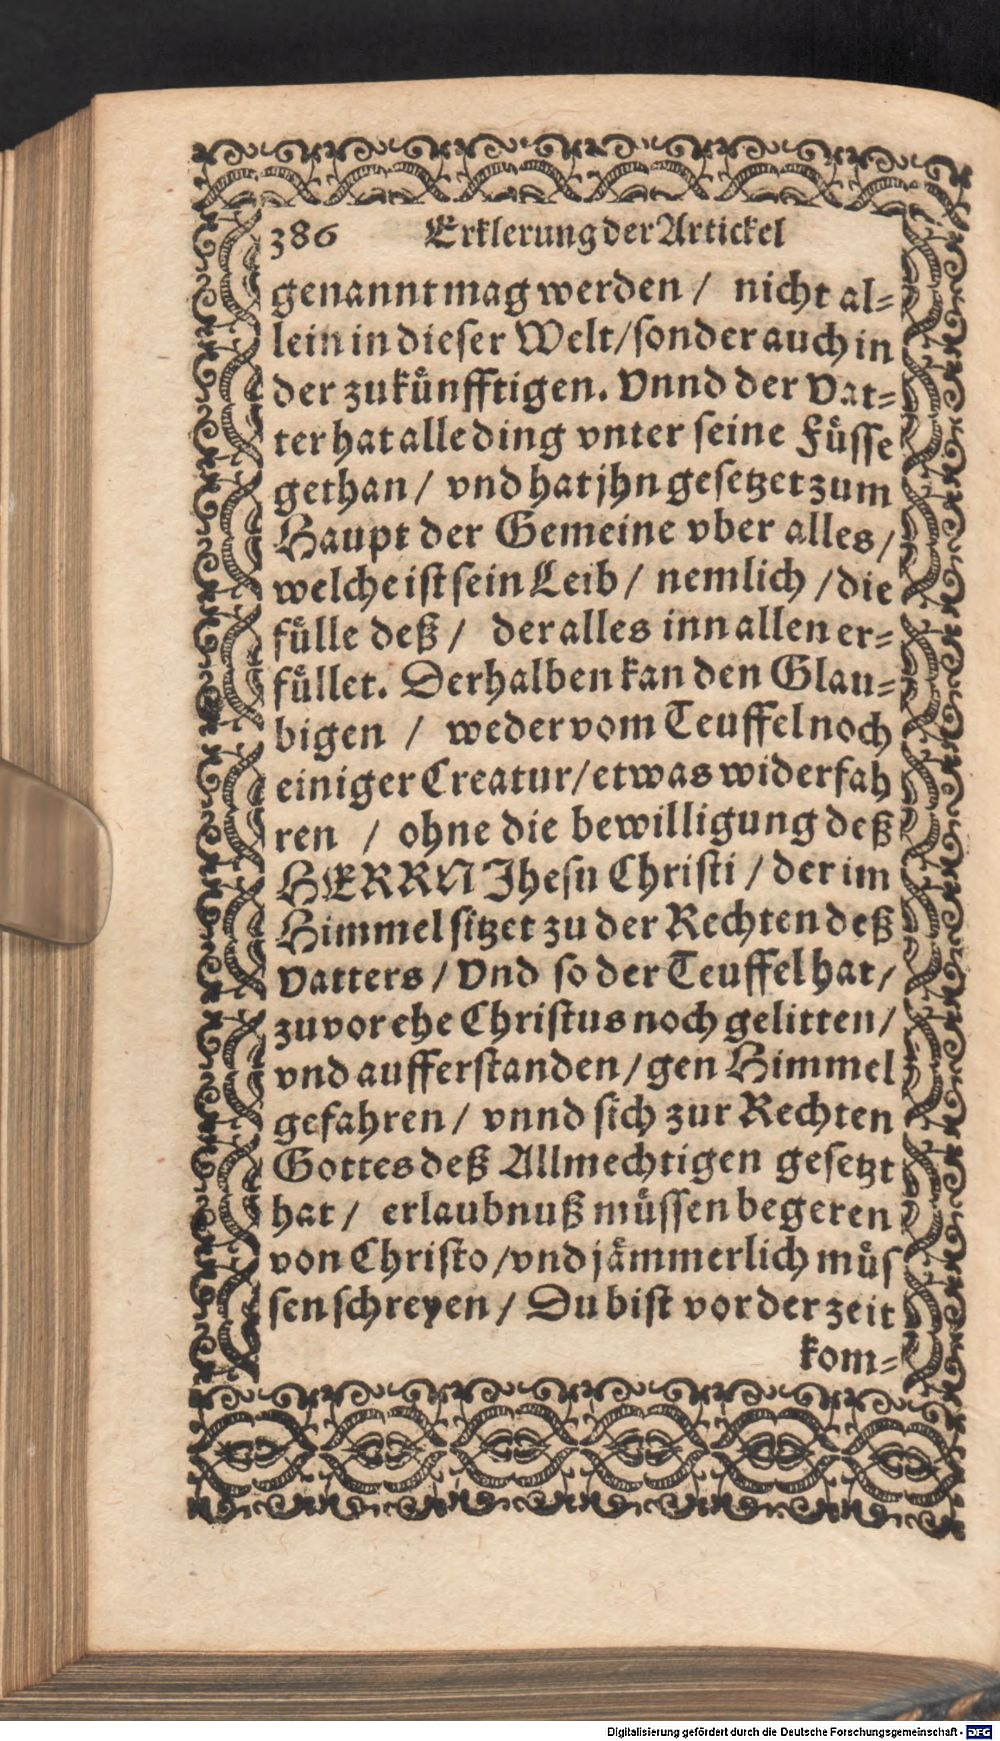 386 Erklerung der Artickel
genannt mag werden / nicht al=
lein in dieser Welt/sonder auch in
der zukuͤnfftigen. Vnnd der Vat=
ter hat alle ding vnter seine Fuͤsse
gethan / vnd hat jhn gesetzet zum
Haupt der Gemeine vber alles/
welche ist sein Leib / nemlich /die
fuͤlle deß / der alles inn allen er=
fuͤllet. Derhalben kan den Glau=
bigen / weder vom Teuffel noch
einiger Creatur/etwas widerfah
ren / ohne die bewilligung deß
HERRN Jhesu Christi / der im
Himmel sitzet zu der Rechten deß
Vatters / Vnd so der Teuffel hat/
zuvor ehe Christus noch gelitten/
vnd aufferstanden/gen Himmel
gefahren / vnnd sich zur Rechten
Gottes deß Allmechtigen gesetzt
hat / erlaubnuß muͤssen begeren
von Christo /vnd jaͤmmerlich muͤs
sen schreyen / Du bist vor der zeit
kom=
Digitalisierung gefördert durch die Deutsche Forschungsgemeinschaft - DFG